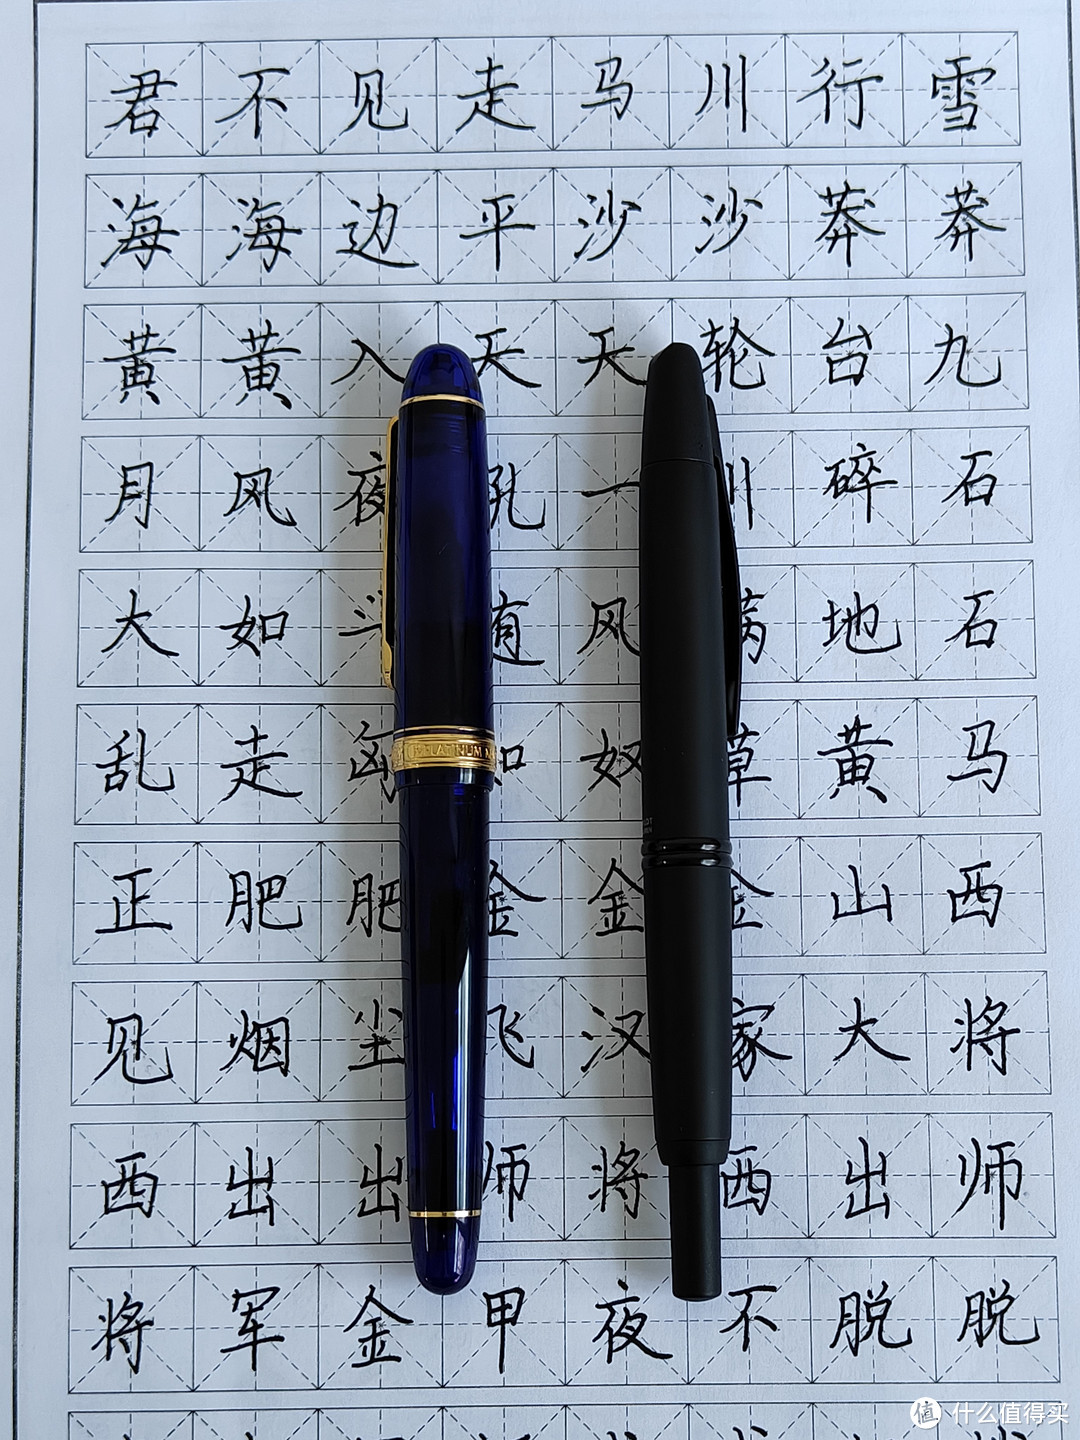 君不见走马川行雪
海海边平沙沙莽莽
黄黄入天天轮台九
月风夜吼一川碎石
大如斗随风满地石
乱走匈如奴草黄马
正肥肥金金金山西
见烟尘飞汉家大将
西出出师将西出师
将军金甲夜不脱脱
PLATINUM
值 什么值得买